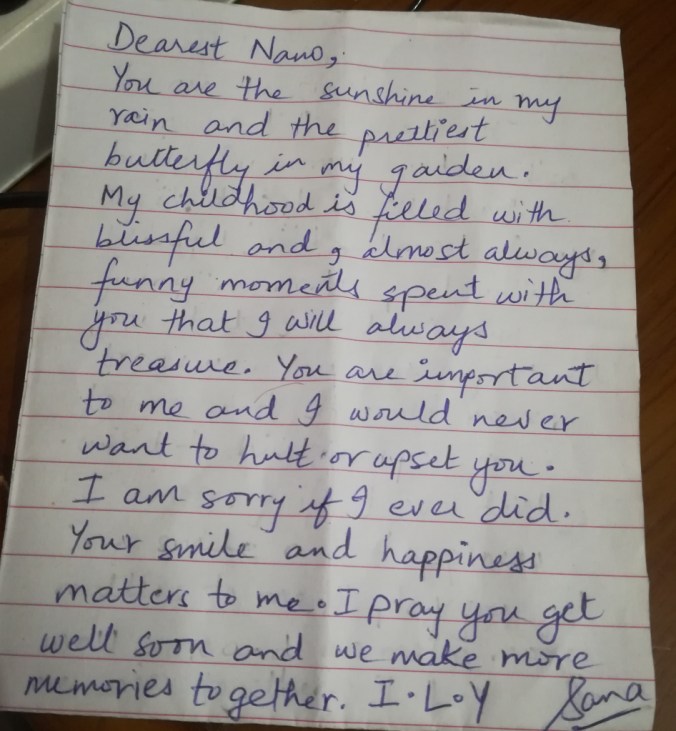 Dearest Nano,
You are the sunshine in my
rain and the prettiest
butterfly in my garden.
My childhood is filled with
blissful and, almost always,
funny moments spent with
you that I will always
treasure. You are important
to me and I would never
want to hurt or upset you.
I am sorry if I ever did.
Your smile and happiness
matters to me. I pray you get
well soon and we make more
memories together. I.L.Y Sana